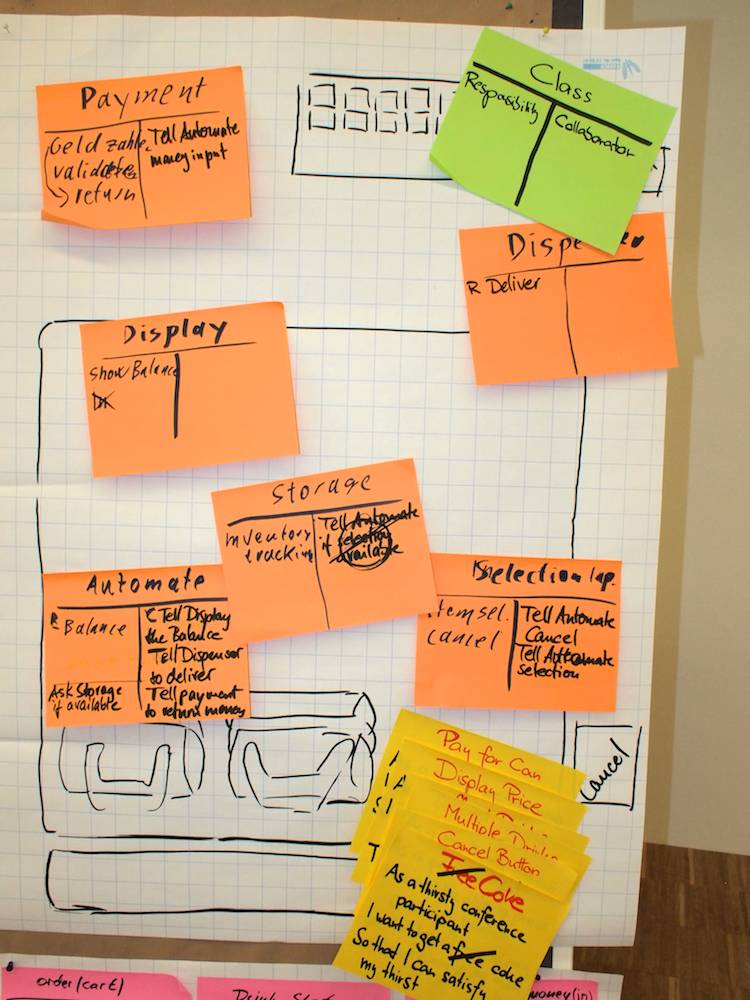 Payment
Geld zahlen
validate
return
Tell Automate
money input
Class
Resposibility
Collaborator
R Deliver
Display
Show Balance
Storage
Inventory
tracking
Tell Automate
if selection
available
Automate
R Balance
Ask Storage
if available
C Tell Display
the Balance
Tell Dispensor
to deliver
Tell payment
to return money
Selection
cancel
Tell Automate
Cancel
Tell Automate
selection
Cancel
Pay for Can
Display Price
Multiple Drinks
Cancel Button
Free Coke
As a thirsty conference
participant
I want to get a free coke
So that I can satisfy
my thirst
order (cart)